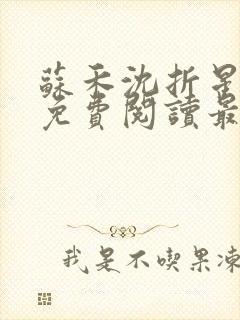 蘇禾沈折星
免費閱讀最
我是不喫果凍